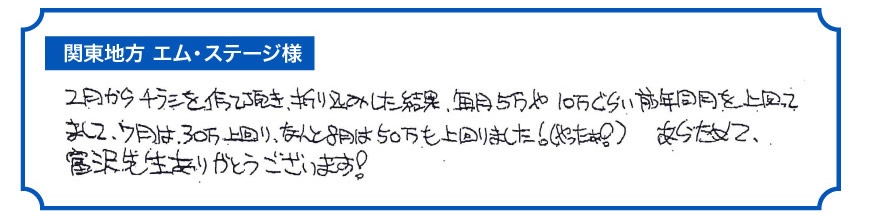 関東地方 エム・ステージ様
2月からチラシを作って頂き、折り込みした結果、毎月5万や10万ぐらい前年同月を上回って
まして、7月は、30万上回り、なんと8月は50万も上回りました!(やったぁ!) あらためて、
富沢先生ありがとうございます!